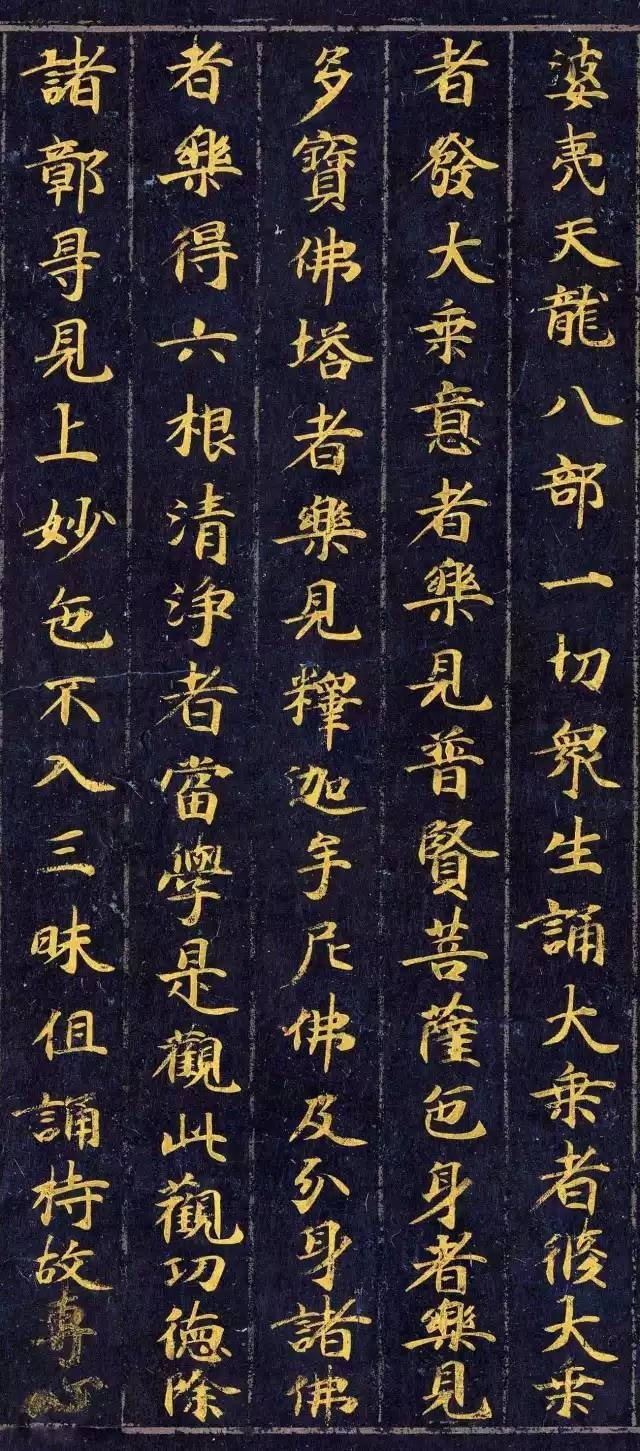 婆夷天龍八部一切衆生誦大乗者俢大乗
者發大乗意者樂見普賢菩薩色身者樂見
多寶佛塔者樂見釋迦牟尼佛及分身諸佛
者樂得六根清淨者當學是觀此觀功德除
諸鄣㝵見上妙色不入三昧但誦持故專心